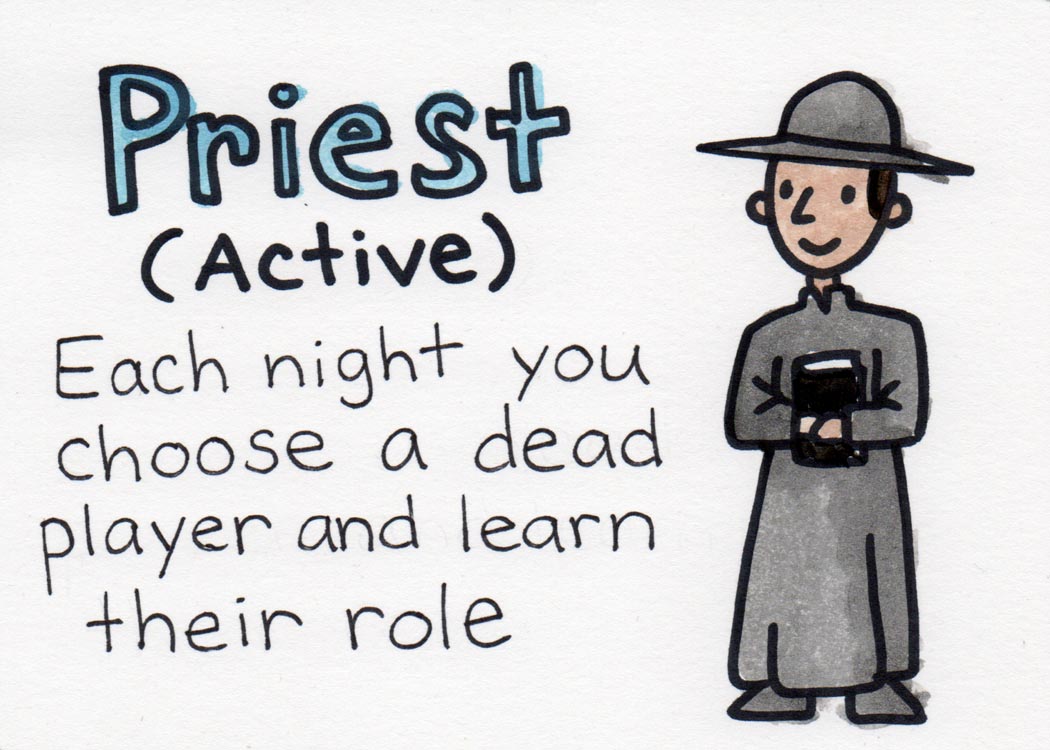 Priest
(Active)
Each night you
choose a dead
player and learn
their role